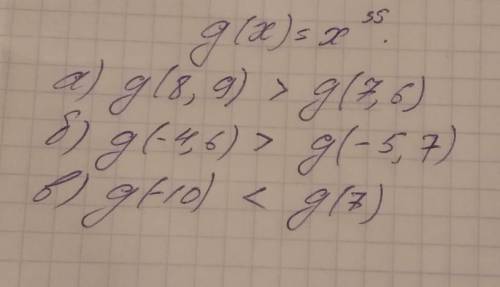 g(x) = x⁵⁵.
а) g(8,9) > g(7,6)
б) g(-4,6) > g(-5,7)
в) g(-10) < g(7)